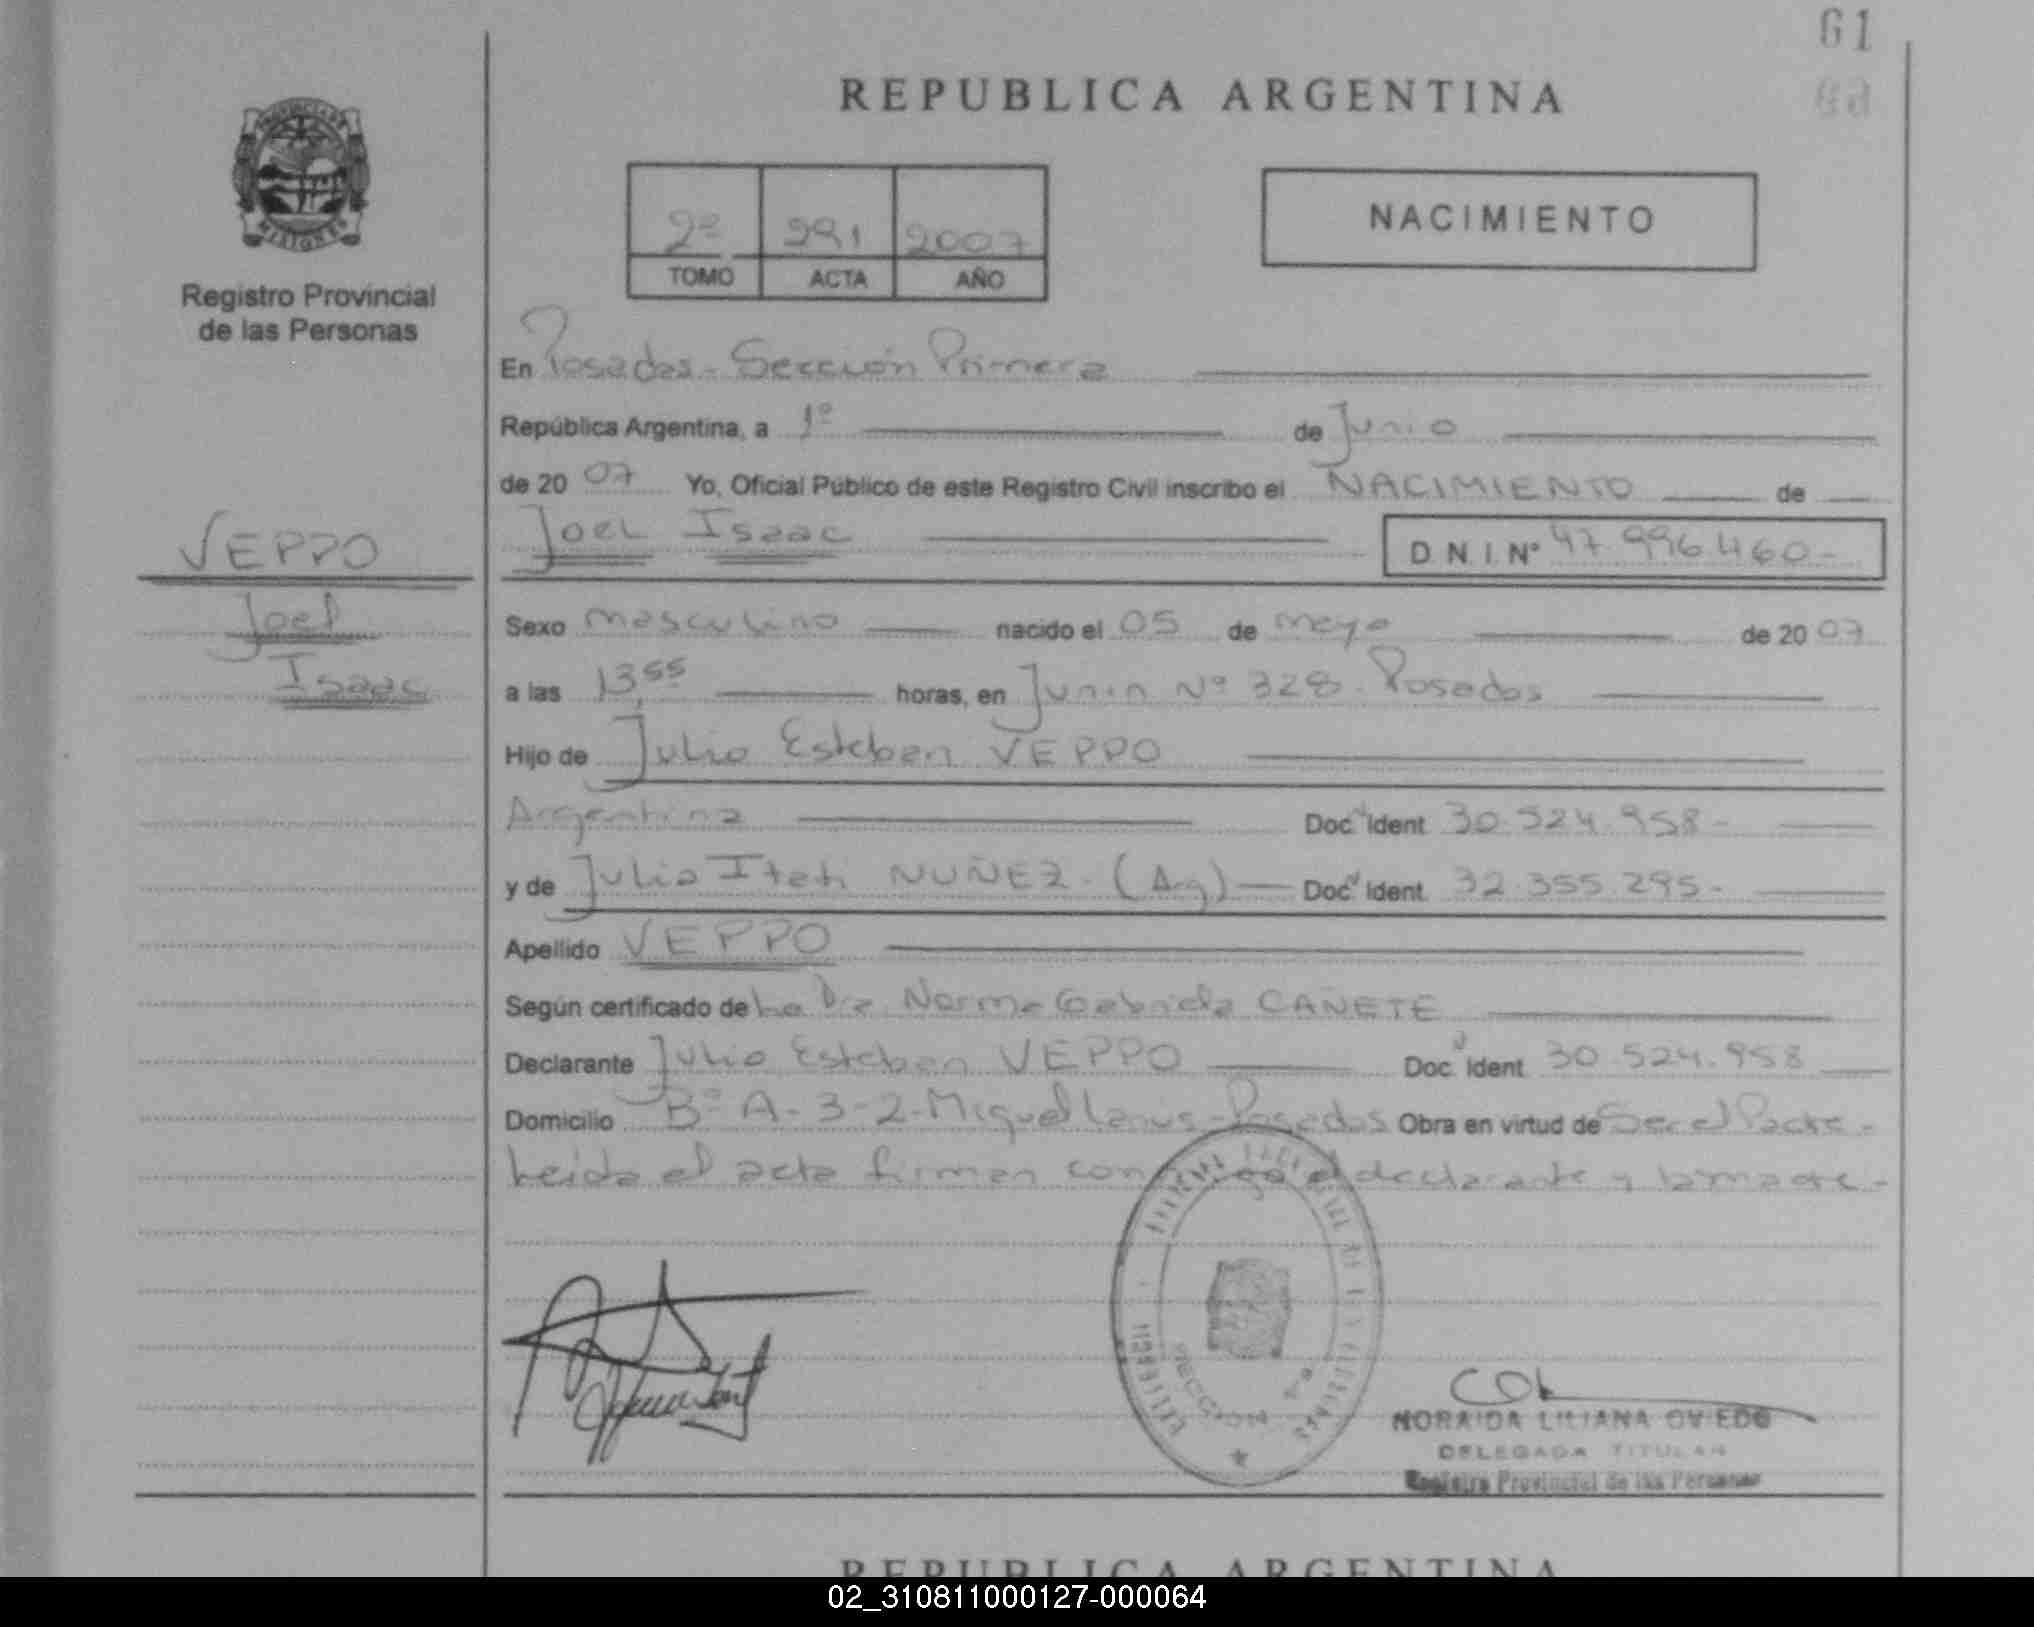 61
REPUBLICA ARGENTINA
PROVINCIA DE
MISIONES
Registro Provincial
de las Personas
2º 291 2007
TOMO ACTA AÑO
NACIMIENTO
En Posadas - Sección Primera
República Argentina, a 1º de Junio
de 2007 Yo, Oficial Público de este Registro Civil inscribo el NACIMIENTO de
VEPPO
Joel Isaac D.N.I. Nº 47.996.460-
Joel
Isaac
Sexo masculino nacido el 05 de mayo de 2007
a las 13,55 horas, en Junin Nº 328. Posadas
Hijo de Julio Esteban VEPPO
Argentina Doc. Ident 30.524.958-
y de Julia Itati NUÑEZ. (Arg) Doc. Ident. 32.355.295-
Apellido VEPPO
Según certificado de La Dra Norma Gabriela CAÑETE
Declarante Julio Esteban VEPPO Doc. Ident 30.524.958
Domicilio Bº A-3-2-Miguel Lanus-Posadas Obra en virtud de Ser el Padre-
Leida el acta firman conmigo el declarante y la madre-
SECCION 1ª
NORAIDA LILIANA OVIEDO
DELEGADA TITULAR
Registro Provincial de las Personas
REPUBLICA ARGENTINA
02_310811000127-000064